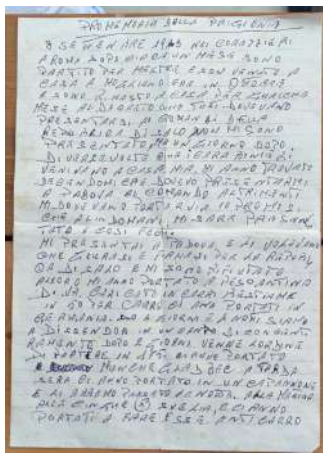 PROMEMORIA DELLA PRIGIONIA
8 SETTEMBRE 1943 NEI CORAZZIERI
A ROMA DOPO MIDICA UN MESE SONO
PARTITO PER MESTRE E SON VENUTO A
CASA A
E SONO RIMASTO A CASA PER QUALCHE
MESE AL DISTRETTO TUTTI DOVEVANO
PRESENTARSI A COMANDI DELLA
REPUBLICA DI SALO NON MI SONO
PRESENTATO MA UN GIORNO DOPO
DIVERSE VOLTE CHE I CARABINIERI
VENIVANO A CASA MIA MI ANNO TROVATO
DICENDOMI CHE DOVEVO PRESENTARMI
A PADOVA AL COMANDO ALTRIMENTI
MI DOVEVANO PORTARVI IO PROMISI
CHE AL INDOMANI MI SAREI PRESEN
TATO E COSI FECI
MI PRESENTAI A PADOVA E LI VOLEVANO
CHE GIURASSI E FIRMASSI PER LA REPUBLI
CA DI SALO E MI SONO RIFIUTATO
ALLORA MI ANNO PORTATO A PESCANTINA
DI VR CARICATO IN CARRI BESTIAME
IN 60 PER CARRO CI ANNO PORTATI IN
GERMANIA GIORNI E NOTTI SIAMO
A DISSENDOR IN UN CAMPO DI CONCENTR
RAMENTO DOPO 2 GIORNI VENNE L ORDINE
DI PARTIRE IN ANNO PORTATO
A MONCHENGLADBEC A TARDA
SERA CI ANNO PORTATO IN UN CAPANNONE
E LI ABBIAMO PASSATO LA NOTTE ALLA MATTINA
ALLE CINQUE (5) SVEGLIA E CI ANNO
PORTATI A FARE FOSSE ANTICARRO